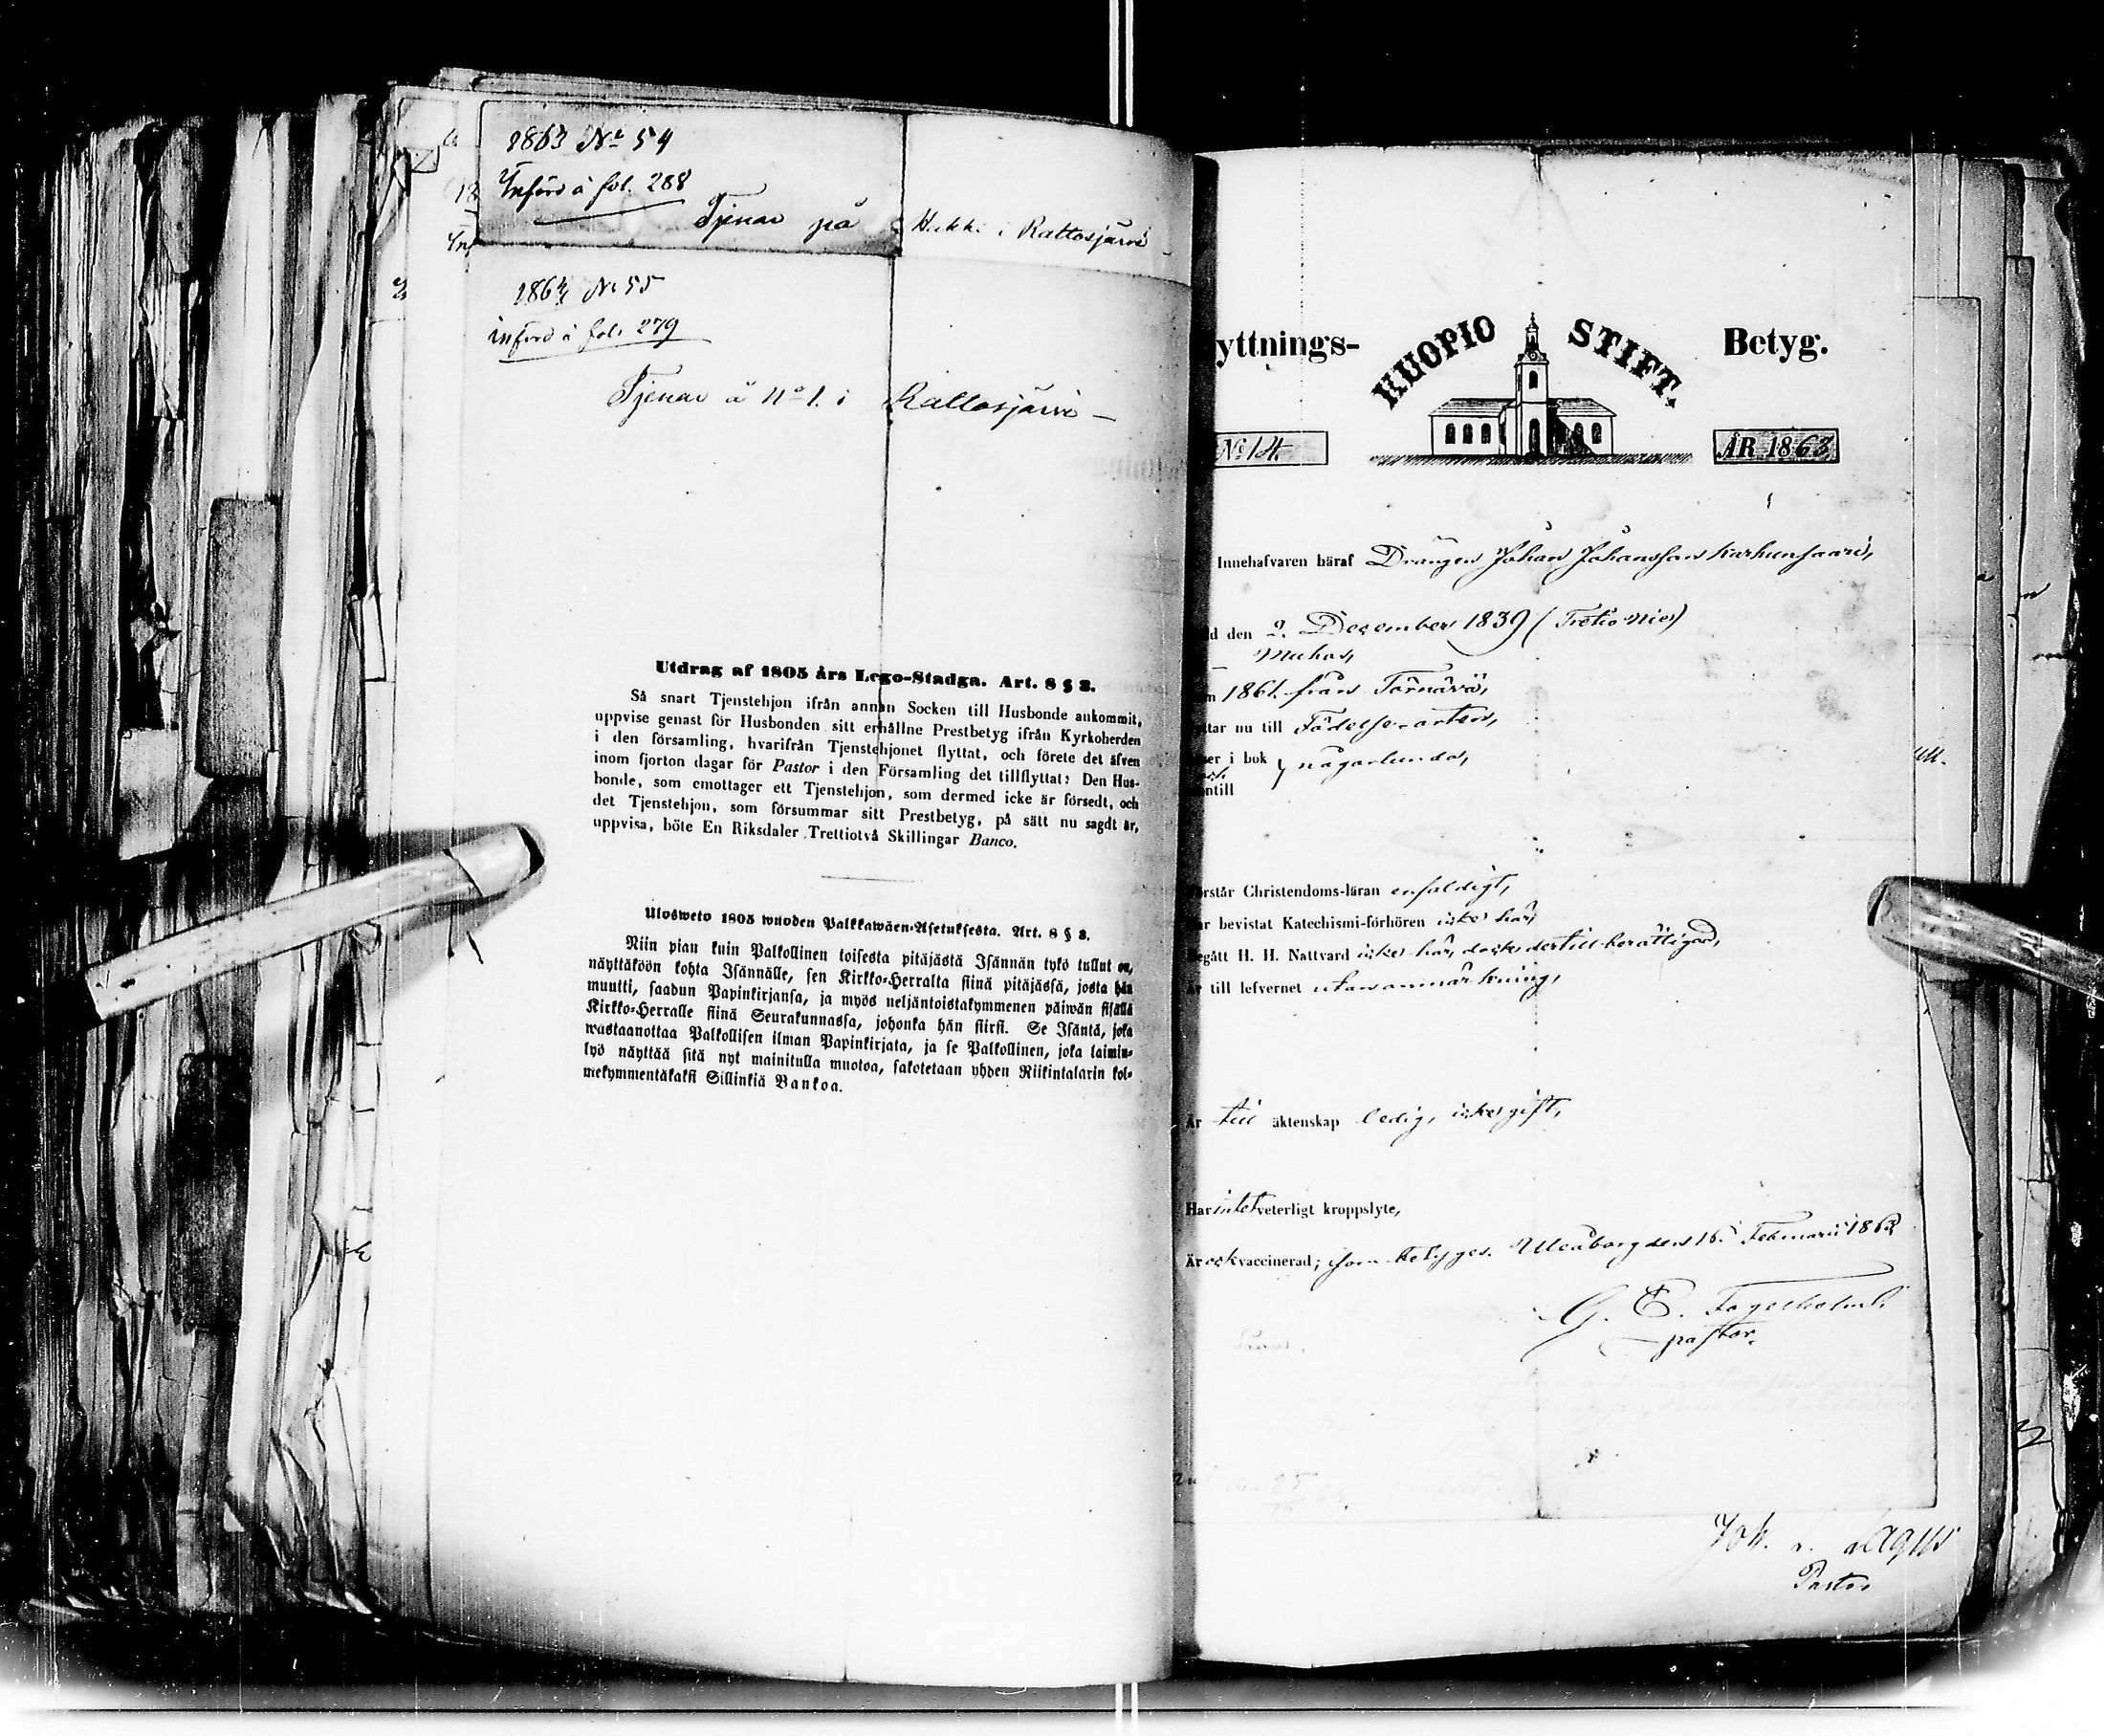 1863 No 54
Införd å fol. 288
Tjenar på Hukki i Rattosjärvi
1863 No 55
införd å fol. 279
Tjenar å No 1. i Rattosjärvi –
Utdrag af 1805 års Lego-Stadga. Art. 8 § 3.
Så snart Tjenstehjon ifrån annan Socken till Husbonde ankommit,
uppvise genast för Husbonden sitt erhållne Prestbetyg ifrån Kyrkoherden
i den församling, hvarifrån Tjenstehjonet flyttat, och förete det äfven
inom fjorton dagar för Pastor i den Församling det tillflyttat: Den Hus-
bonde, som emottager ett Tjenstehjon, som dermed icke är försedt, och
det Tjenstehjon, som försummar sitt Prestbetyg, på sätt nu sagdt är,
uppvisa, böte En Riksdaler Trettiotvå Skillingar Banco.
Ulosweto 1805 wuoden Palkkawäen-Asetuksesta. Art. 8 § 3.
Niin pian kuin Palkollinen toisesta pitäjästä Isännän tykö tullut on,
näyttäköön kohta Isännälle, sen Kirkko-Herralta siinä pitäjässä, josta hän
muutti, saadun Papinkirjansa, ja myös neljäntoistakymmenen päiwän sisällä
Kirkko-Herralle siinä Seurakunnassa, johonka hän siirsi. Se Isäntä, joka
wastaanottaa Palkollisen ilman Papinkirjata, ja se Palkollinen, joka laimin-
lyö näyttää sitä nyt mainitulla muotoa, sakotetaan yhden Riikintalarin kol-
mekymmentäkaksi Sillinkiä Bankoa.
yttnings- KUOPIO STIFT. Betyg.
No 14. ÅR 1863
Innehafvaren häraf Drängen Johan Johansson Karhunsaari,
d den 2. December 1839 (Tretionio)
Muhos,
n 1861. från Tornävä,
ttar nu till Födelse-orten,
ser i bok någorlunda,
ntill
örstår Christendoms-läran enfaldigt,
ar bevistat Katechismi-förhören icke här,
egått H. H. Nattvard icke här, dock dertill berättigad,
Är till lefvernet utan anmärkning,
Är till äktenskap ledig, icke gift,
Har intet veterligt kroppslyte,
Är ock vaccinerad; som betygas. Uleåborg den 16. Februarii 1863
G. E.
pastor.
Joh. Lagus
Pastor